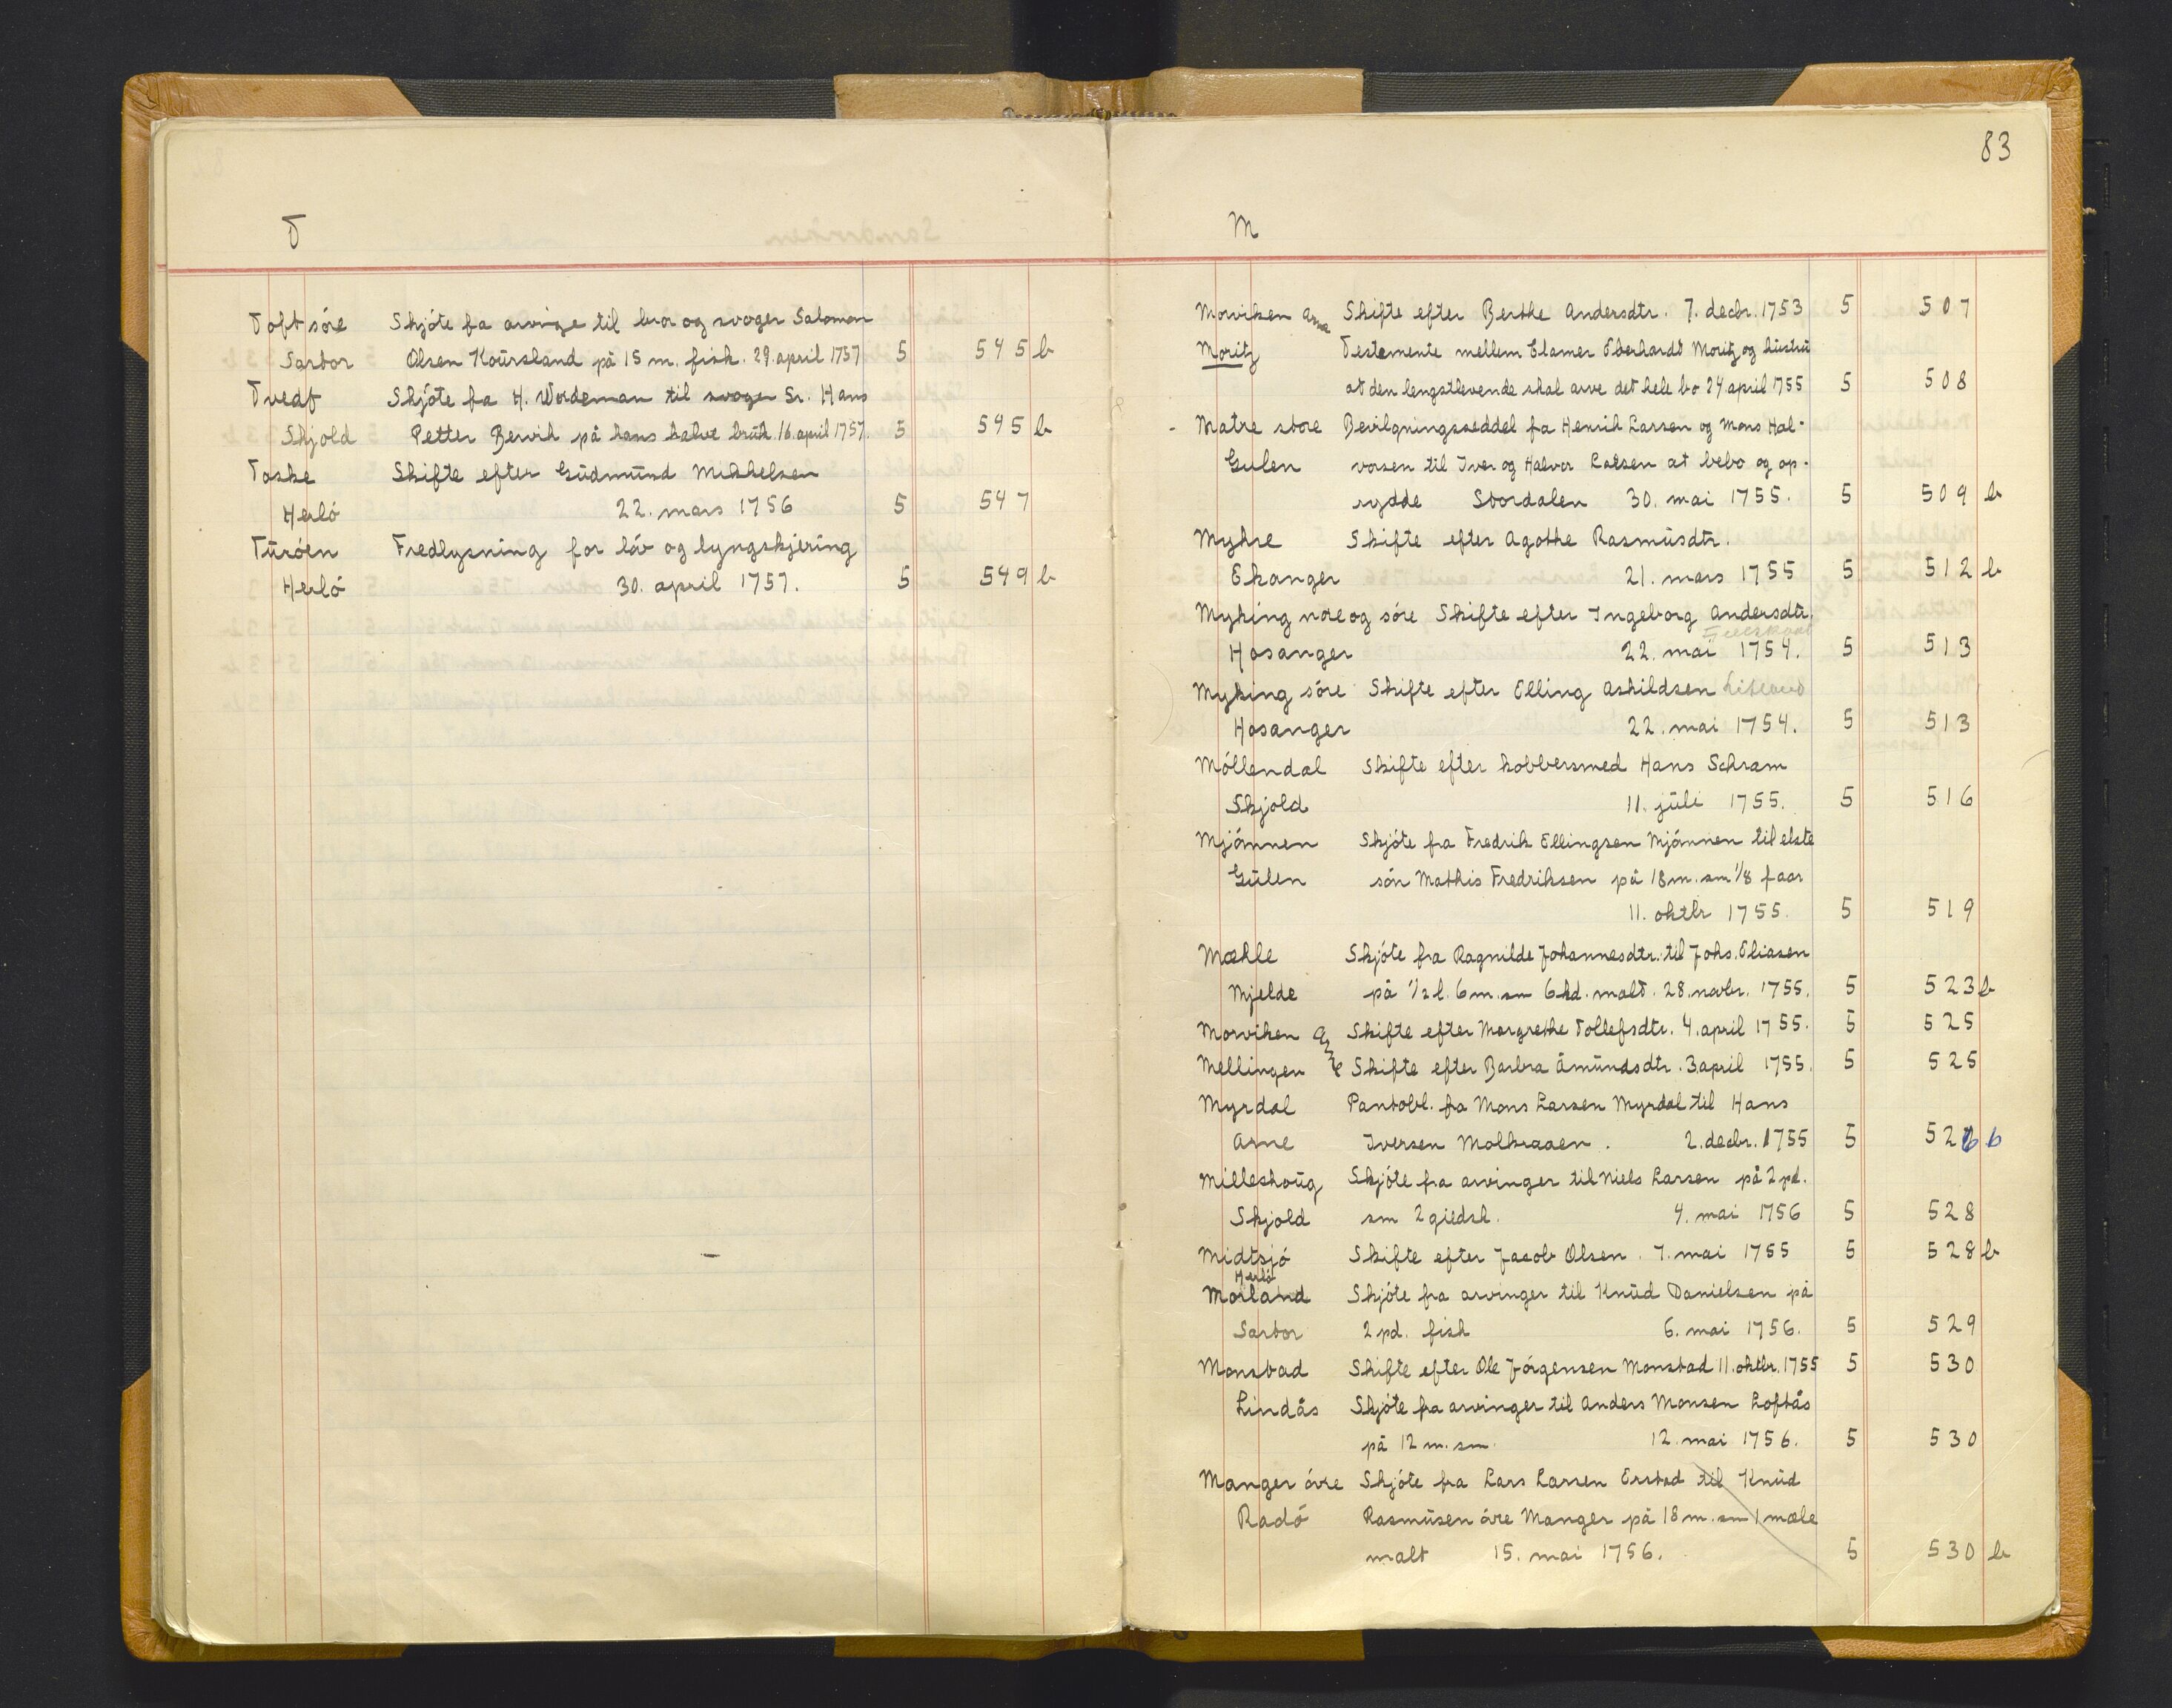 T
Toft søre Skjöte fra arvinge til bror og svoger Salomon
Sartor Olsen Koürsland på 15 m. fisk. 29. april 1757 5 545 b
Tvedt Skjöte fra H. Wordeman til svoger Sr. Hans
Skjold Petter Bervik på hans halve brük. 16. april 1757. 5 545 b
Toske Skifte efter Güdmünd Mikkelsen
Herlö 22. mars 1756 5 547
Türöen Fredlysning for löv og lyngskjering
Herlö 30. april 1757. 5 549 b
83
M
Morviken Arne Skifte efter Berthe Andersdtr. 7. decbr. 1753 5 507
Moritz Testamente mellem Clamer Eberhardt Moritz og hüstrü
at den lengstlevende skal arve det hele bo 24 april 1755 5 508
Matre store Bevilgningsseddel fra Henrik Larsen og Mons Hal-
Gulen vorsen til Iver og Halvor Larsen at bebo og op-
rydde Stordalen 30. mai 1755. 5 509 b
Myhre Skifte efter Agathe Rasmüsdtr.
Ekanger 21. mars 1755 5 512 b
Myking nore og söre Skifte efter Ingeborg Andersdtr.
Hosanger 22. mai 1754. 5 513
Myking söre Skifte efter Elling Askildsen
Hosanger 22. mai 1754. 5 513
Möllendal Skifte efter kobbersmed Hans Schram
Skjold 11. jüli 1755. 5 516
Mjömnen Skjöte fra Fredrik Ellingsen Mjömnen til elste
Gülen sön Mathis Fredriksen på 18 m. sm 1/8 faar
11. oktbr 1755. 5 519
Mæhle Skjöte fra Ragnilde Johannesdtr. til Johs. Eliasen
Mjelde på 1/2 l. 6 m. sm 6 kd. malt. 28. novbr. 1755. 5 523 b
Morviken Arne Skifte efter Margrethe Tollefsdtr. 4. april 1755. 5 525
Mellingen Skifte efter Barbra Åmündsdtr. 3 april 1755. 5 525
Myrdal Pantobl. fra Mons Larsen Myrdal til Hans
Arne Iversen Molkraaen. 2. decbr. 1755 5 526 b
Milleshoüg Skjöte fra arvinger til Niels Larsen på 2 pd.
Skjold sm 2 giedsk. 4. mai 1756 5 528
Midtsjö Skifte efter Jacob Olsen. 7. mai 1755 5 528 b
Herlö
Morland Skjöte fra arvinger til Knüd Danielsen på
Sartor 2 pd. fisk 6. mai 1756. 5 529
Monstad Skifte efter Ole Jörgensen Monstad 11. oktbr. 1755 5 530
Lindås Skjöte fra arvinger til Anders Monsen Loftås
på 12 m. sm. 12. mai 1756. 5 530
Manger övre Skjöte fra Lars Larsen Erstad til Knüd
Radö Rasmüsen övre Manger på 18 m. sm 1 mæle
malt 15. mai 1756. 5 530 b